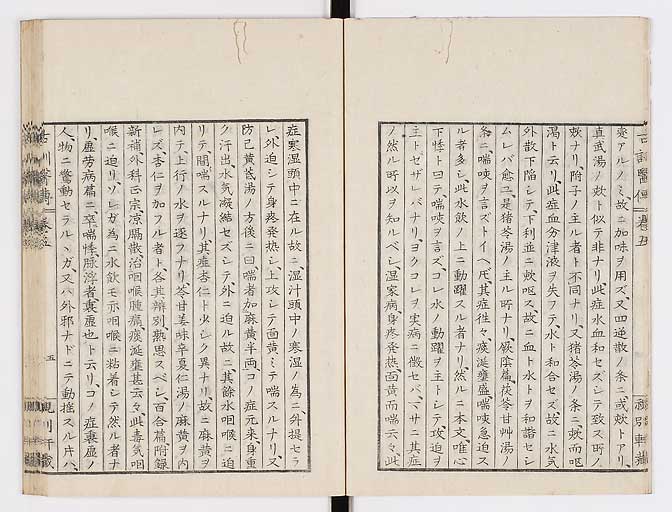 変アルノミ故ニ加味ヲ用ズ又四逆散ノ条ニ或欬トアリ
真武湯ノ欬ト似テ非ナリ此症水血和セズシテ致ス所ノ
欬ナリ附子ノ主ル者ト不同ナリ又猪苓湯ノ条ニ欬而嘔
渇ト云リ此症血分津液ヲ失フテ水ト和合セズ故ニ水気
外散下陥シテ下利並ニ欬嘔ス故ニ血ト水トヲ和諧セシ
ムレバ愈ユ是猪苓湯ノ主ル所ナリ厥陰篇茯苓甘艸湯ノ
条ニ喘咳ヲ言ズトイヘ𪜈其症徃々痰涎壅盛喘咳急迫ス
ル者多シ此水飲ノ上ニ動躍スル者ナリ然ルニ本文唯心
下悸ト曰テ喘咳ヲ言ズコレ水ノ動躍ヲ主トシテ攻迫ヲ
主トセザレバナリヨクコレヲ実病ニ徴セバマサニ其症
ノ然ル所以ヲ知ルベシ湿家病身疼発熱面黄而喘云々此
症寒湿頭中ニ在ル故ニ湿汁頭中ノ寒湿ノ為ニ外提セラ
レ外迫シテ身疼発熱シ上攻シテ面黄ミテ喘スルナリ又
防己黄芪湯ノ方後ニ曰喘者加麻黄半両コノ症元来身重
ク汗出水気凝結セズシテ外ニ迫ル故ニ其餘水咽喉ニ迫
リテ間喘スルナリ其症杏仁ト少シク異ナリ故ニ麻黄ヲ
内テ上行ノ水ヲ逐フナリ苓甘姜味辛夏仁湯ノ麻黄ヲ内
レズ杏仁ヲ加フル者ト各其辨別熟思スベシ百合篇附録
新補外科正宗凉膈散治咽喉腫痛痰涎壅甚云々此毒気咽
喉ニ迫リソレガ為ニ水飲モ亦咽喉ニ粘着シテ然ル者ナ
リ虚労病篇ニ卒喘悸脉浮者裏虚也ト云リコノ症裏虚ノ
人物ニ驚動セラルヽガ又ハ外邪ナドニテ動揺スル片ハ
五